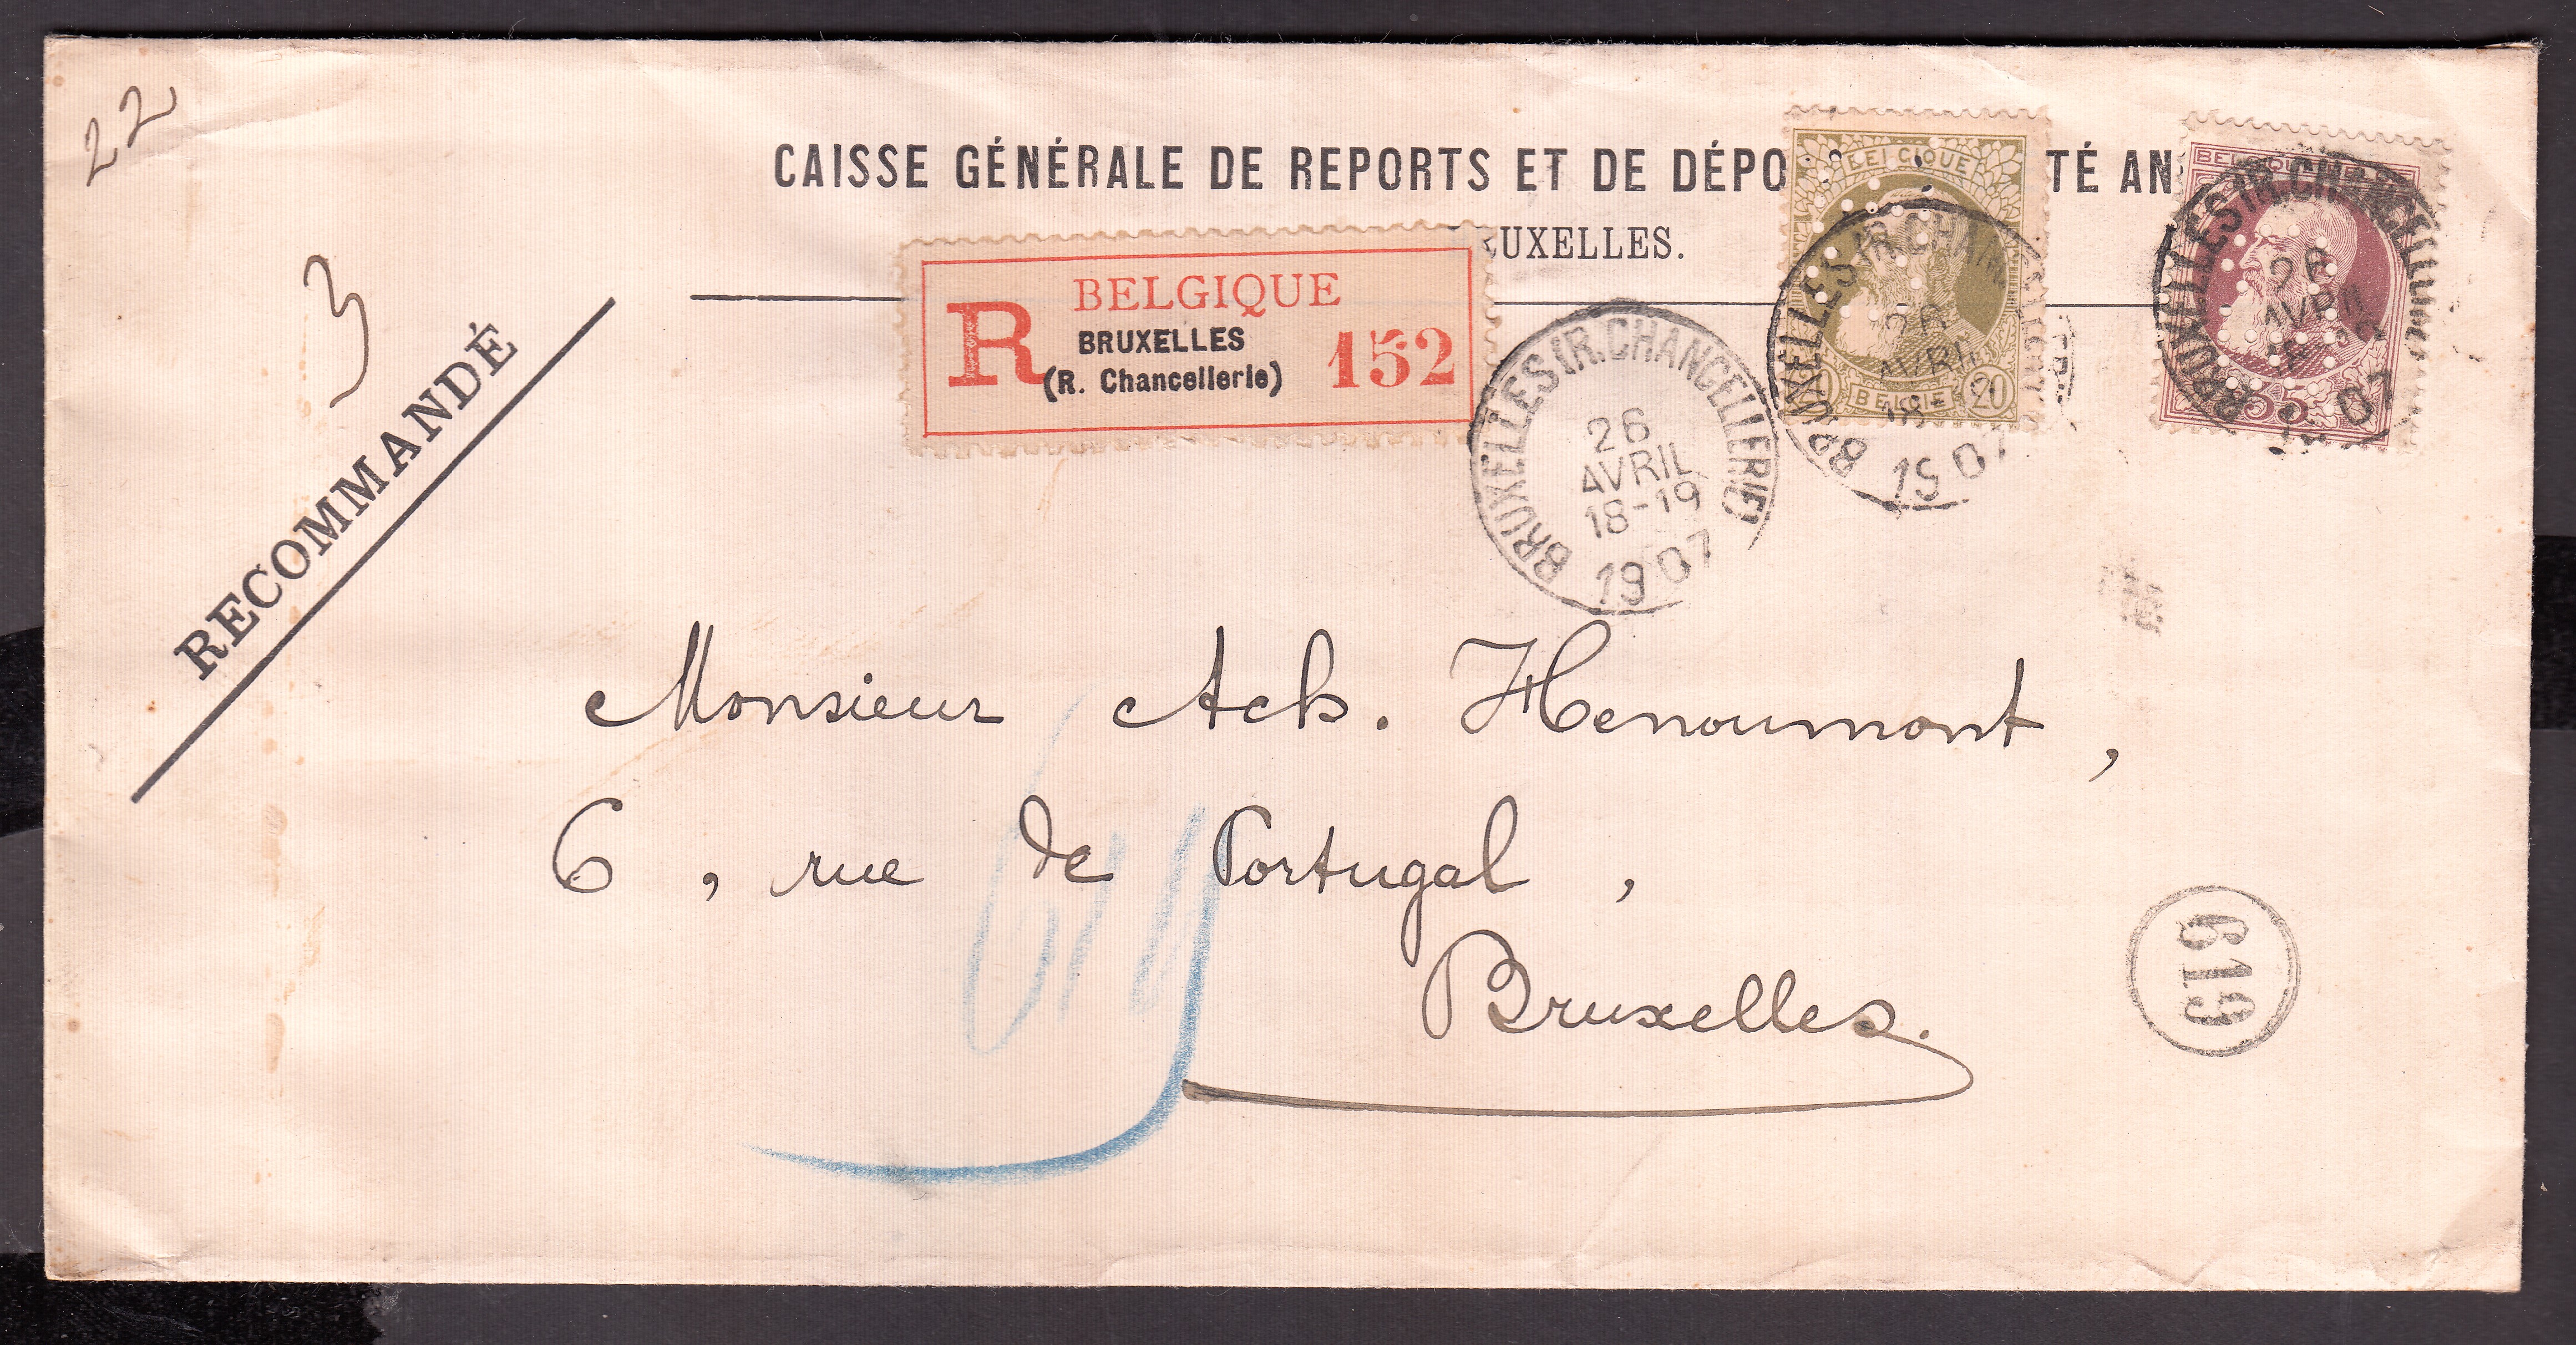 22
CAISSE GÉNÉRALE DE REPORTS ET DE DÉPO TÉ AN
RUXELLES.
3
RECOMMANDÉ
R
BELGIQUE
BRUXELLES
(R. Chancellerie)
152
BRUXELLES (R. CHANCELLERIE)
26
AVRIL
18-19
1907
BELGIQUE
BELGIË 20
BRUXELLES (R. CHAN
26
AVRIL
18-
1907
BELGIQUE
35
BRUXELLES (R. CHANCELLERIE
26
AVRIL
07
Monsieur Ach. Henoumont,
6, rue de Portugal,
Bruxelles.
619